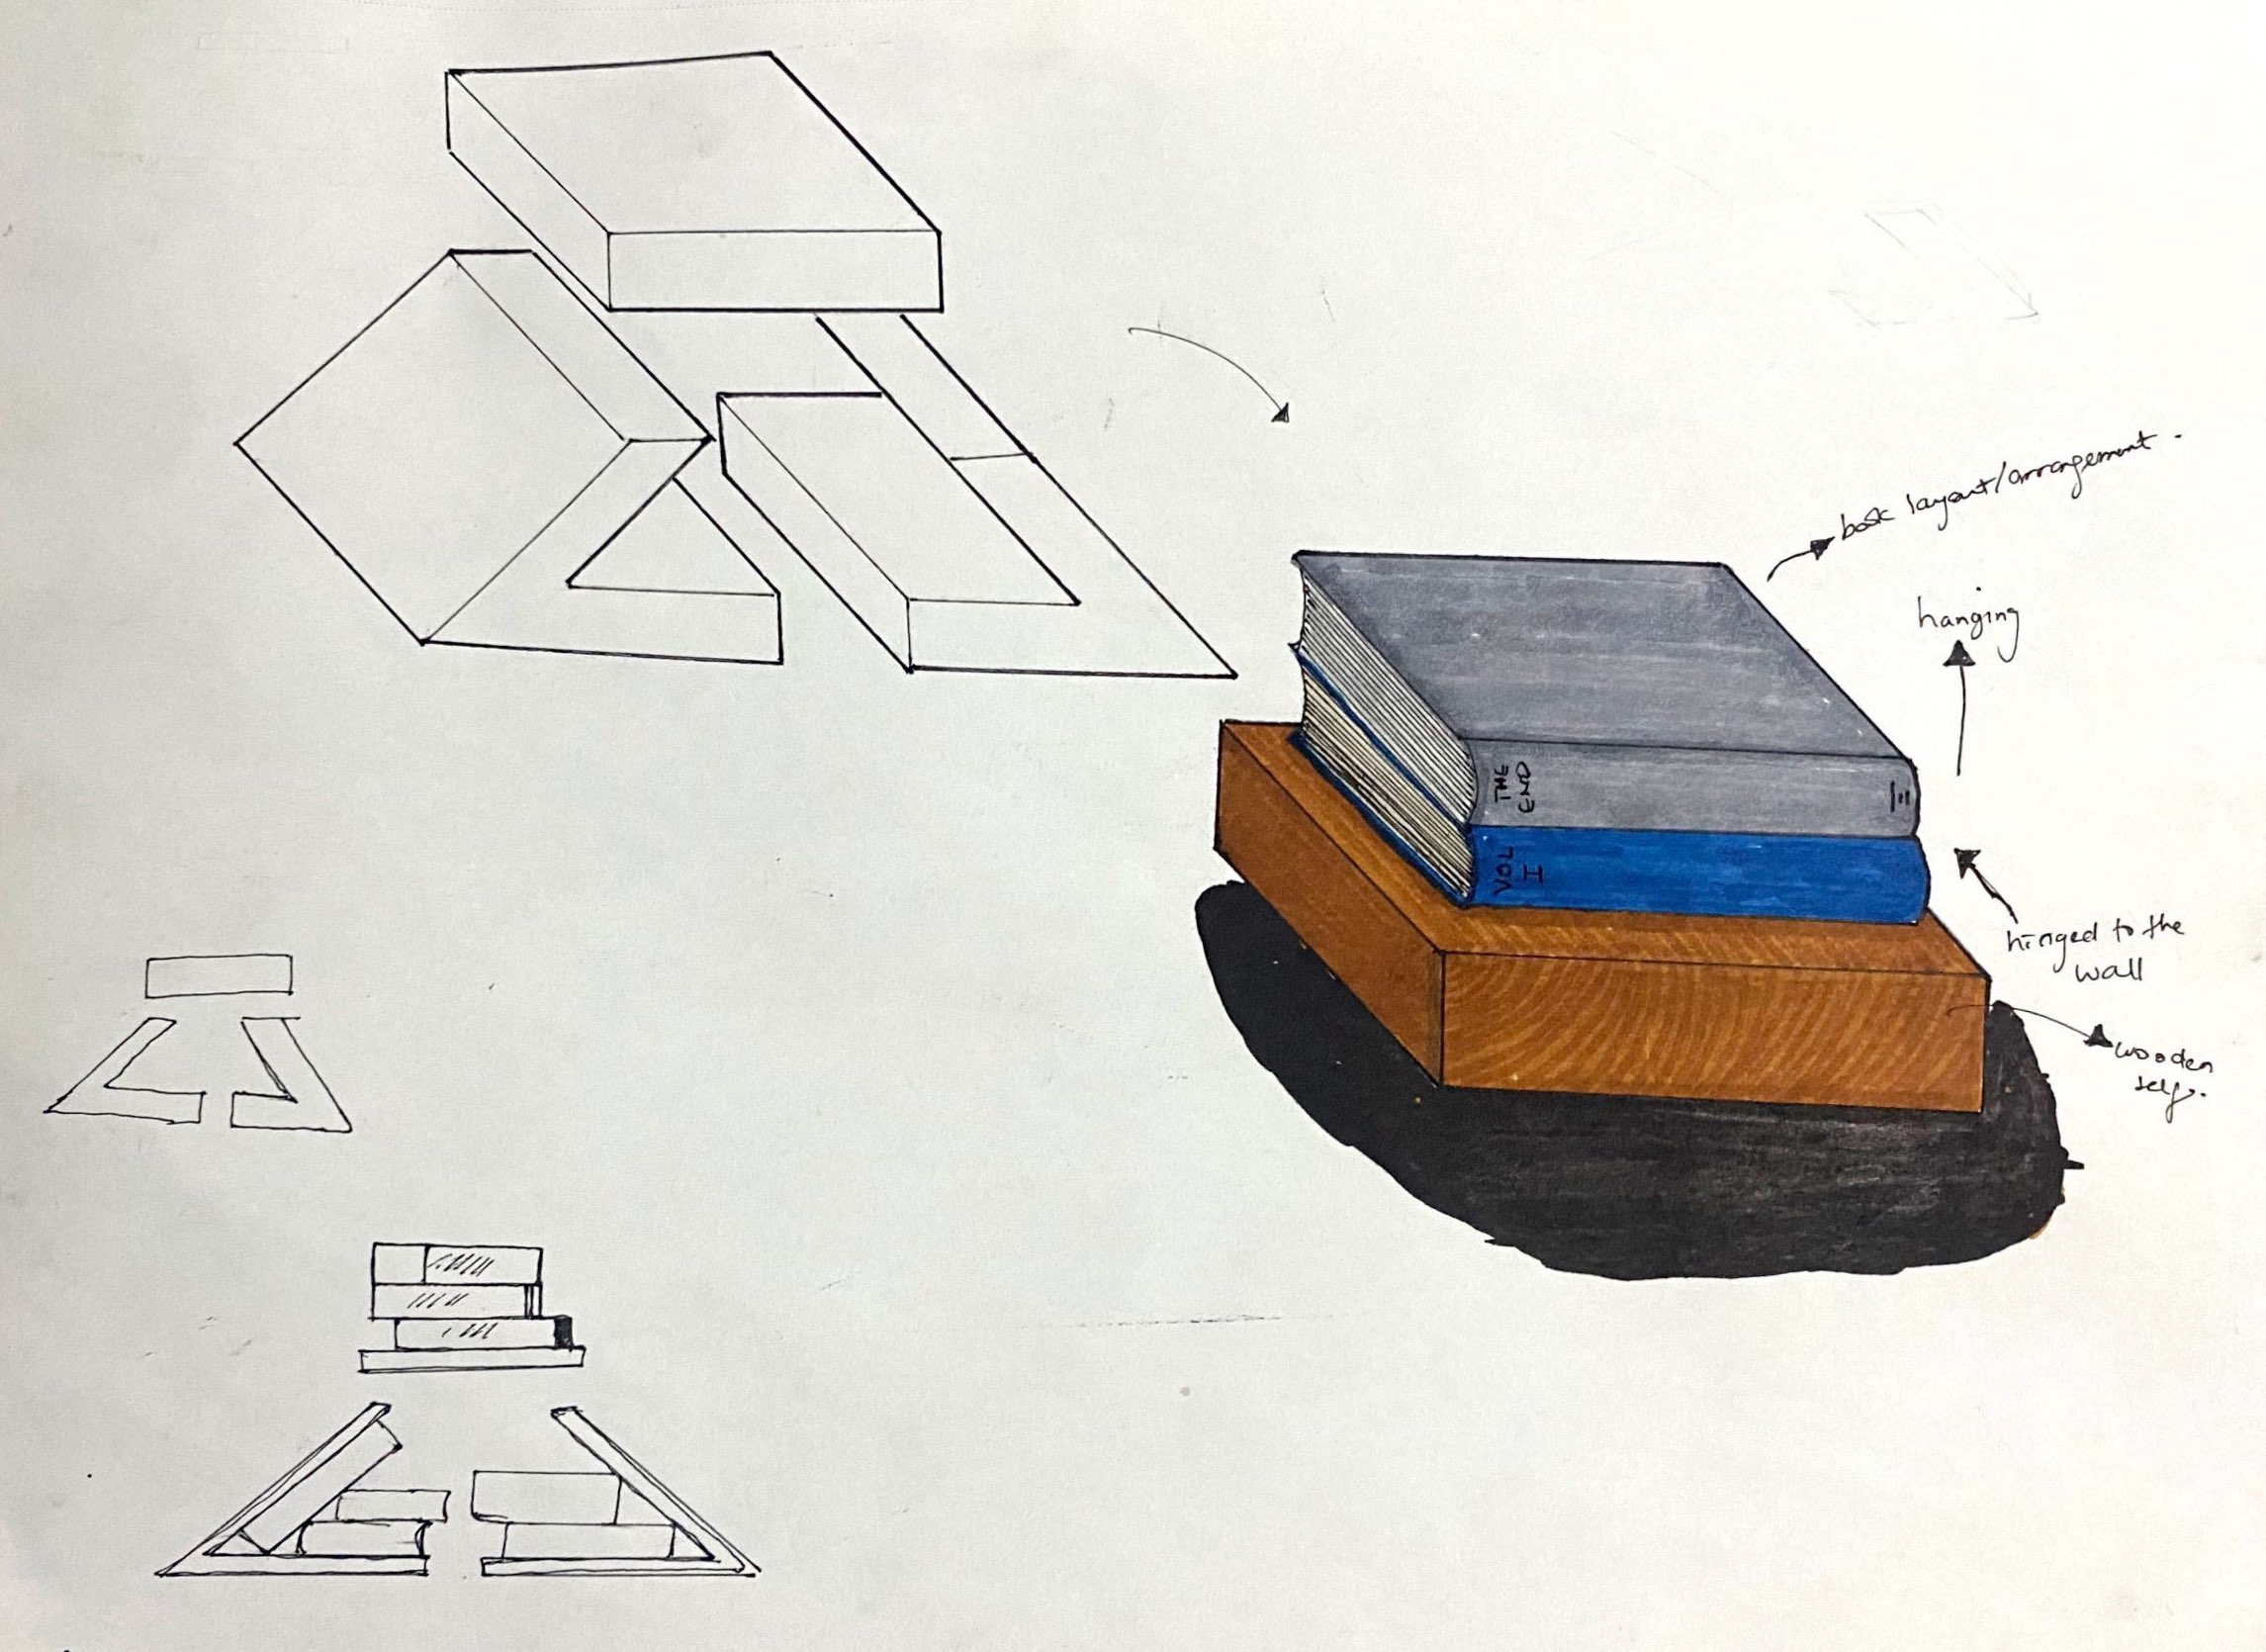 book layout/arrangement.
hanging
THE
END
II
VOL
I
hinged to the
wall
wooden
self.